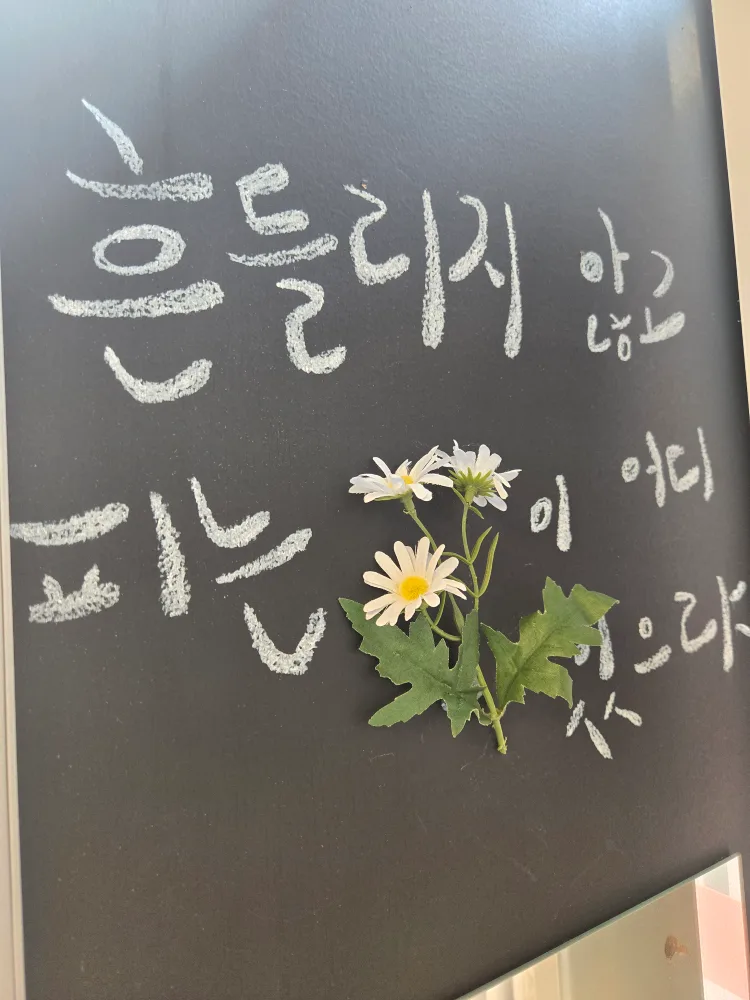 흔들리지 않고
피는 이 어디
있으랴